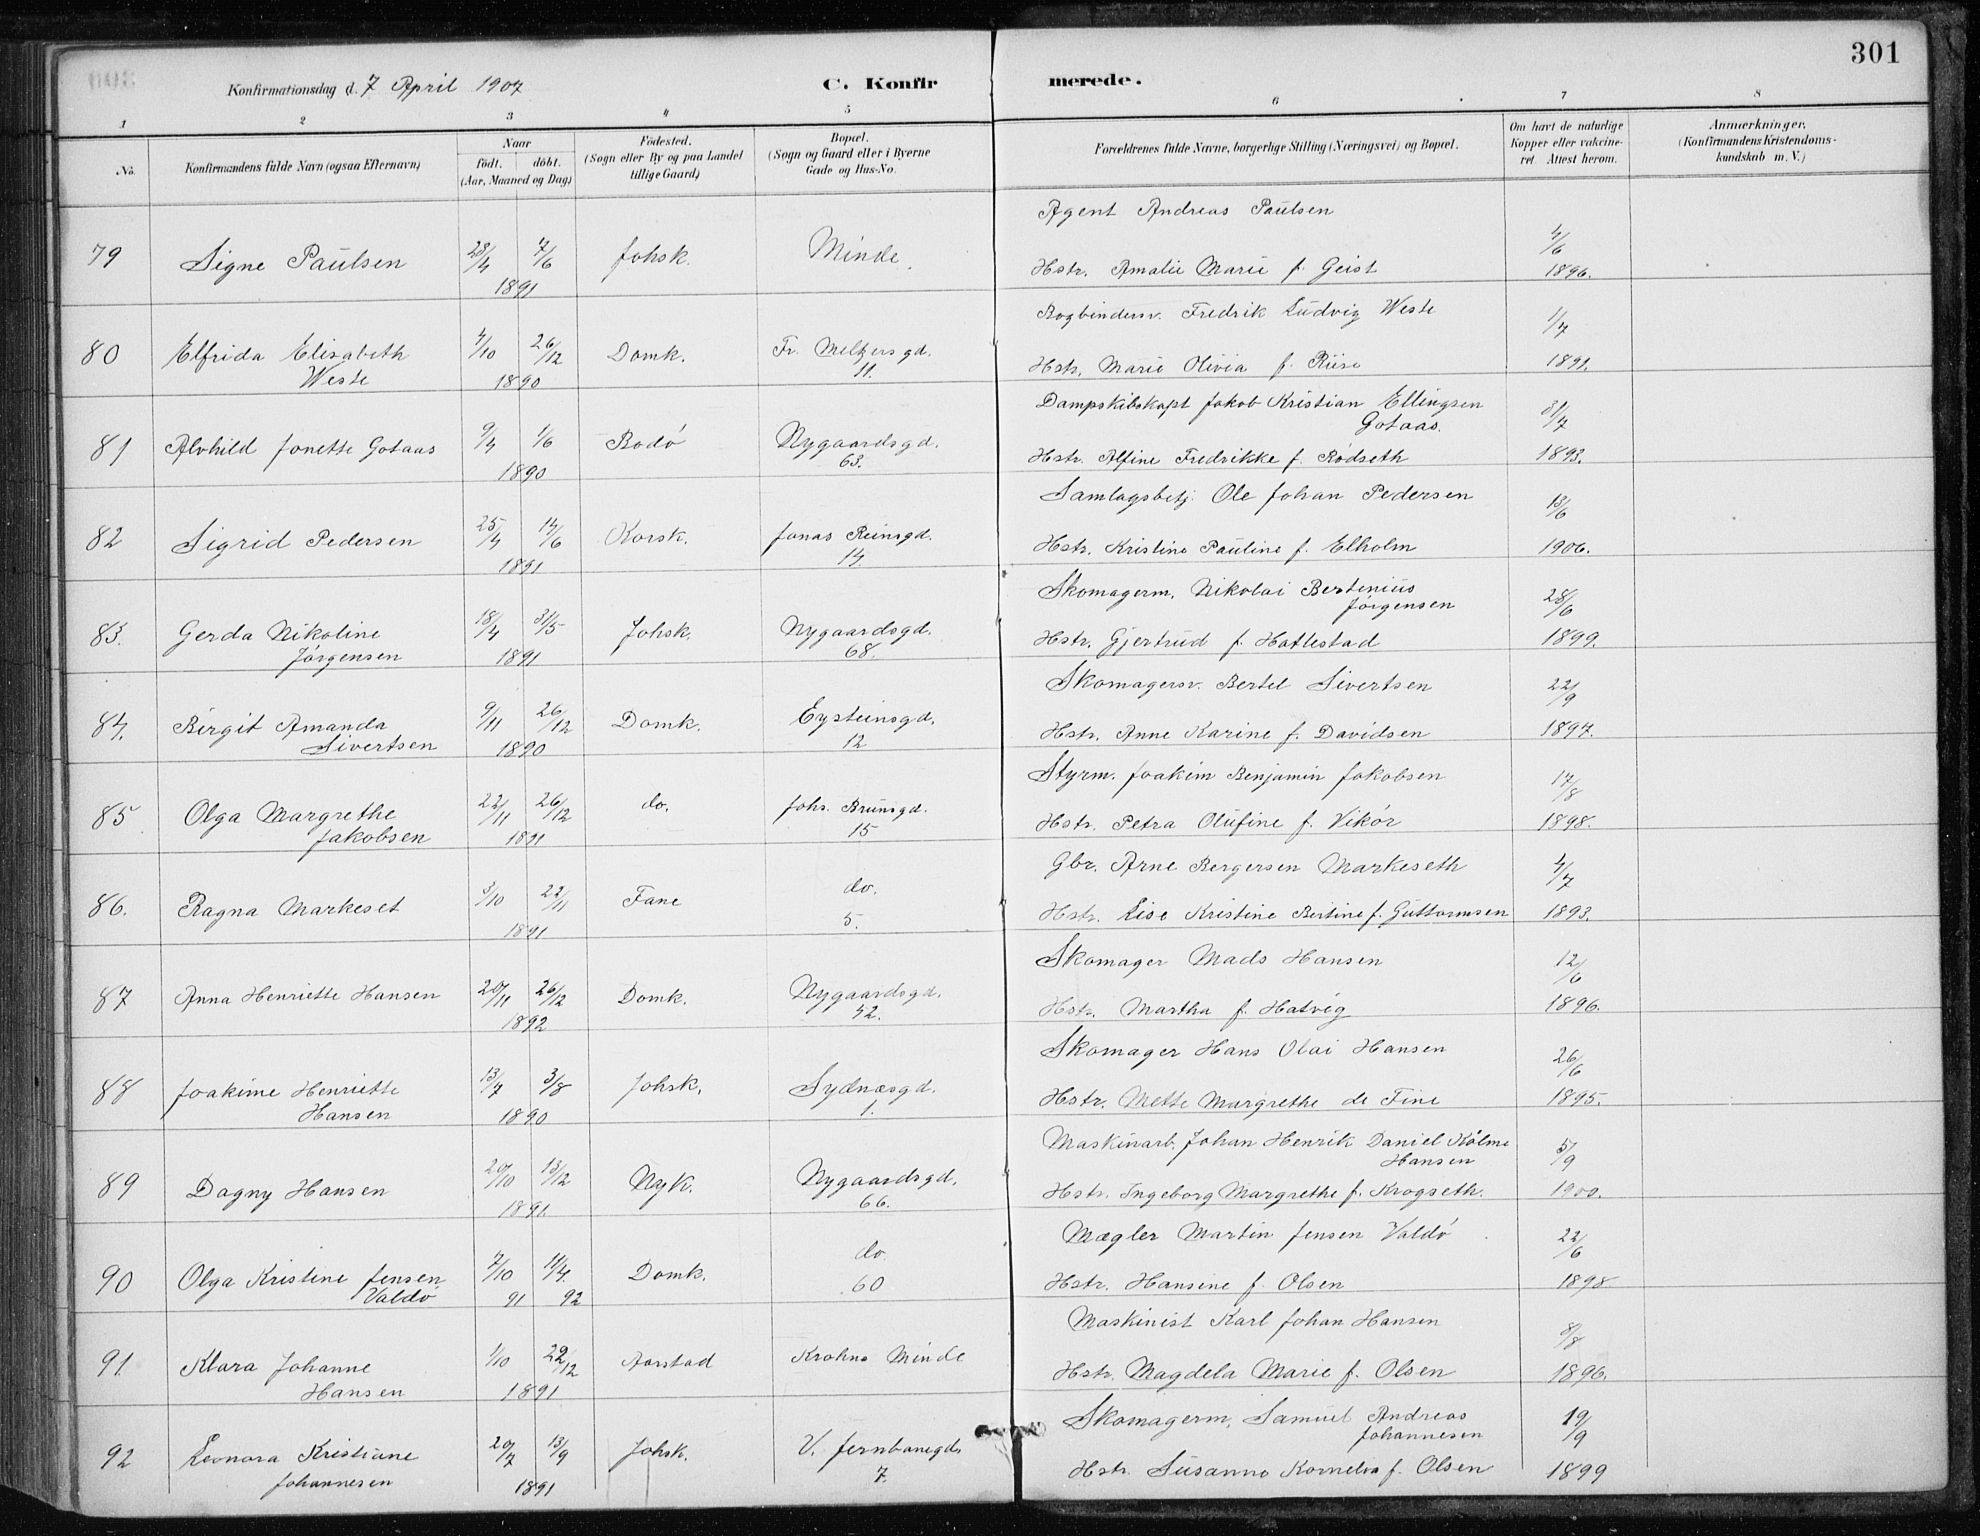 301
Konfirmationsdag d. 7 April 1907 C. Konfirmerede.
1 2 3 4 5 6 7 8
No. Konfirmandens fulde Navn (ogsaa Efternavn) Naar født. døbt. (Aar, Maaned og Dag) Fødested. (Sogn eller By og paa Landet tillige Gaard) Bopæl. (Sogn og Gaard eller i Byerne Gade og Hus-No. Forældrenes fulde Navne, borgerlige Stilling (Næringsvei) og Bopæl. Om havt de naturlige Kopper eller vakcineret. Attest herom. Anmærkninger. (Konfirmandens Kristendomskundskab m. V.)
Agent Andreas Paulsen
79 Signe Paulsen 28/4 7/6 Johsk. Minde 4/6
1891 Hstr. Amalie Marie f. Geist 1896.
Bogbindersv. Fredrik Ludvig Weste 1/7
80 Elfrida Elisabeth 4/10 26/12 Domk. Fr. Meltzersgd.
Weste 1890 11. Hstr. Marie Olivia f. Riise 1891.
Dampskibskapt Jakob Kristian Ellingsen 31/7
Gotaas.
81 Alvhild Jonette Gotaas 9/4 1/6 Bodø Nygaardsgd.
1890 63. Hstr. Alfine Fredrikke f. Rødseth 1893.
Samlagsbetj. Ole Johan Pedersen 13/6
82 Sigrid Pedersen 25/4 14/6 Korsk. Jonas Reinsgd.
1891 14. Hstr. Kristine Pauline f. Elholm 1906.
Skomagerm. Nikolai Bertinius 28/6
Jørgensen
83. Gerda Nikoline 18/4 31/5 Johsk. Nygaardsgd.
Jørgensen 1891 68. Hstr. Gjertrud f. Hattestad 1899.
Skomagersv. Bertel Sivertsen 22/9
84. Birgit Amanda 9/11 26/12 Domk. Eysteinsgd.
Sivertsen 1890 12 Hstr. Anne Karine f. Davidsen 1897.
Styrm. Joakim Benjamin Jakobsen 17/8
85 Olga Margrethe 22/11 26/12 do. Johs. Brunsgd.
Jakobsen 1891 15 Hstr. Petra Olufine f. Vikør 1898.
Gbr. Arne Bergersen Markeseth 4/7
86. Ragna Markeset 3/10 22/11 Fane do.
1891 5. Hstr. Lise Kristine Bertine f. Guttormsen 1893.
Skomager Mads Hansen 12/6
87 Anna Henriette Hansen 20/11 26/12 Domk. Nygaardsgd.
1892 42. Hstr. Martha f. Hatvig 1896.
Skomager Hans Olai Hansen 26/6
88 Joakime Henriette 13/7 3/8 Johsk. Sydnæsgd.
Hansen 1890 1. Hstr. Mette Margrethe de Fine 1895.
Maskinarb. Johan Henrik Daniel Kølme 5/9
Hansen
89 Dagny Hansen 20/10 13/12 Nyk. Nygaardsgd.
1891. 66. Hstr. Ingeborg Margrethe f. Krogseth. 1900.
Mægler Martin Jensen Valdø 22/6
90 Olga Kristine Jensen 7/10 11/4 Domk. do.
Valdø 91 92 60 Hstr. Hansine f. Olsen 1898.
Maskinist Karl Johan Hansen 8/8
91. Klara Johanne 1/10 22/12 Aarstad Krohns Minde
Hansen 1891 Hstr. Magdela Marie f. Olsen 1896.
Skomagerm. Samuel Andreas 19/9
Johannesen
92 Leonora Kristiane 20/7 13/9 Johsk. V. Jernbanegd.
Johannesen 1891 7. Hstr. Susanne Kornelia f. Olsen 1899